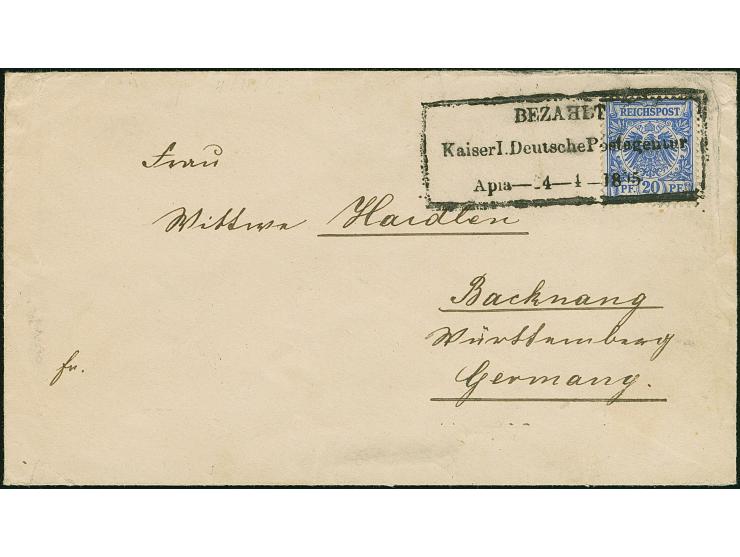 BEZAHLT
REICHSPOST
Kaiserl.DeutschePostagentur
PF. 20 PF.
Apia— 4—1—1895
Frau
Wittwe Haidlen
Backnang
Württemberg
Germany.
fr.